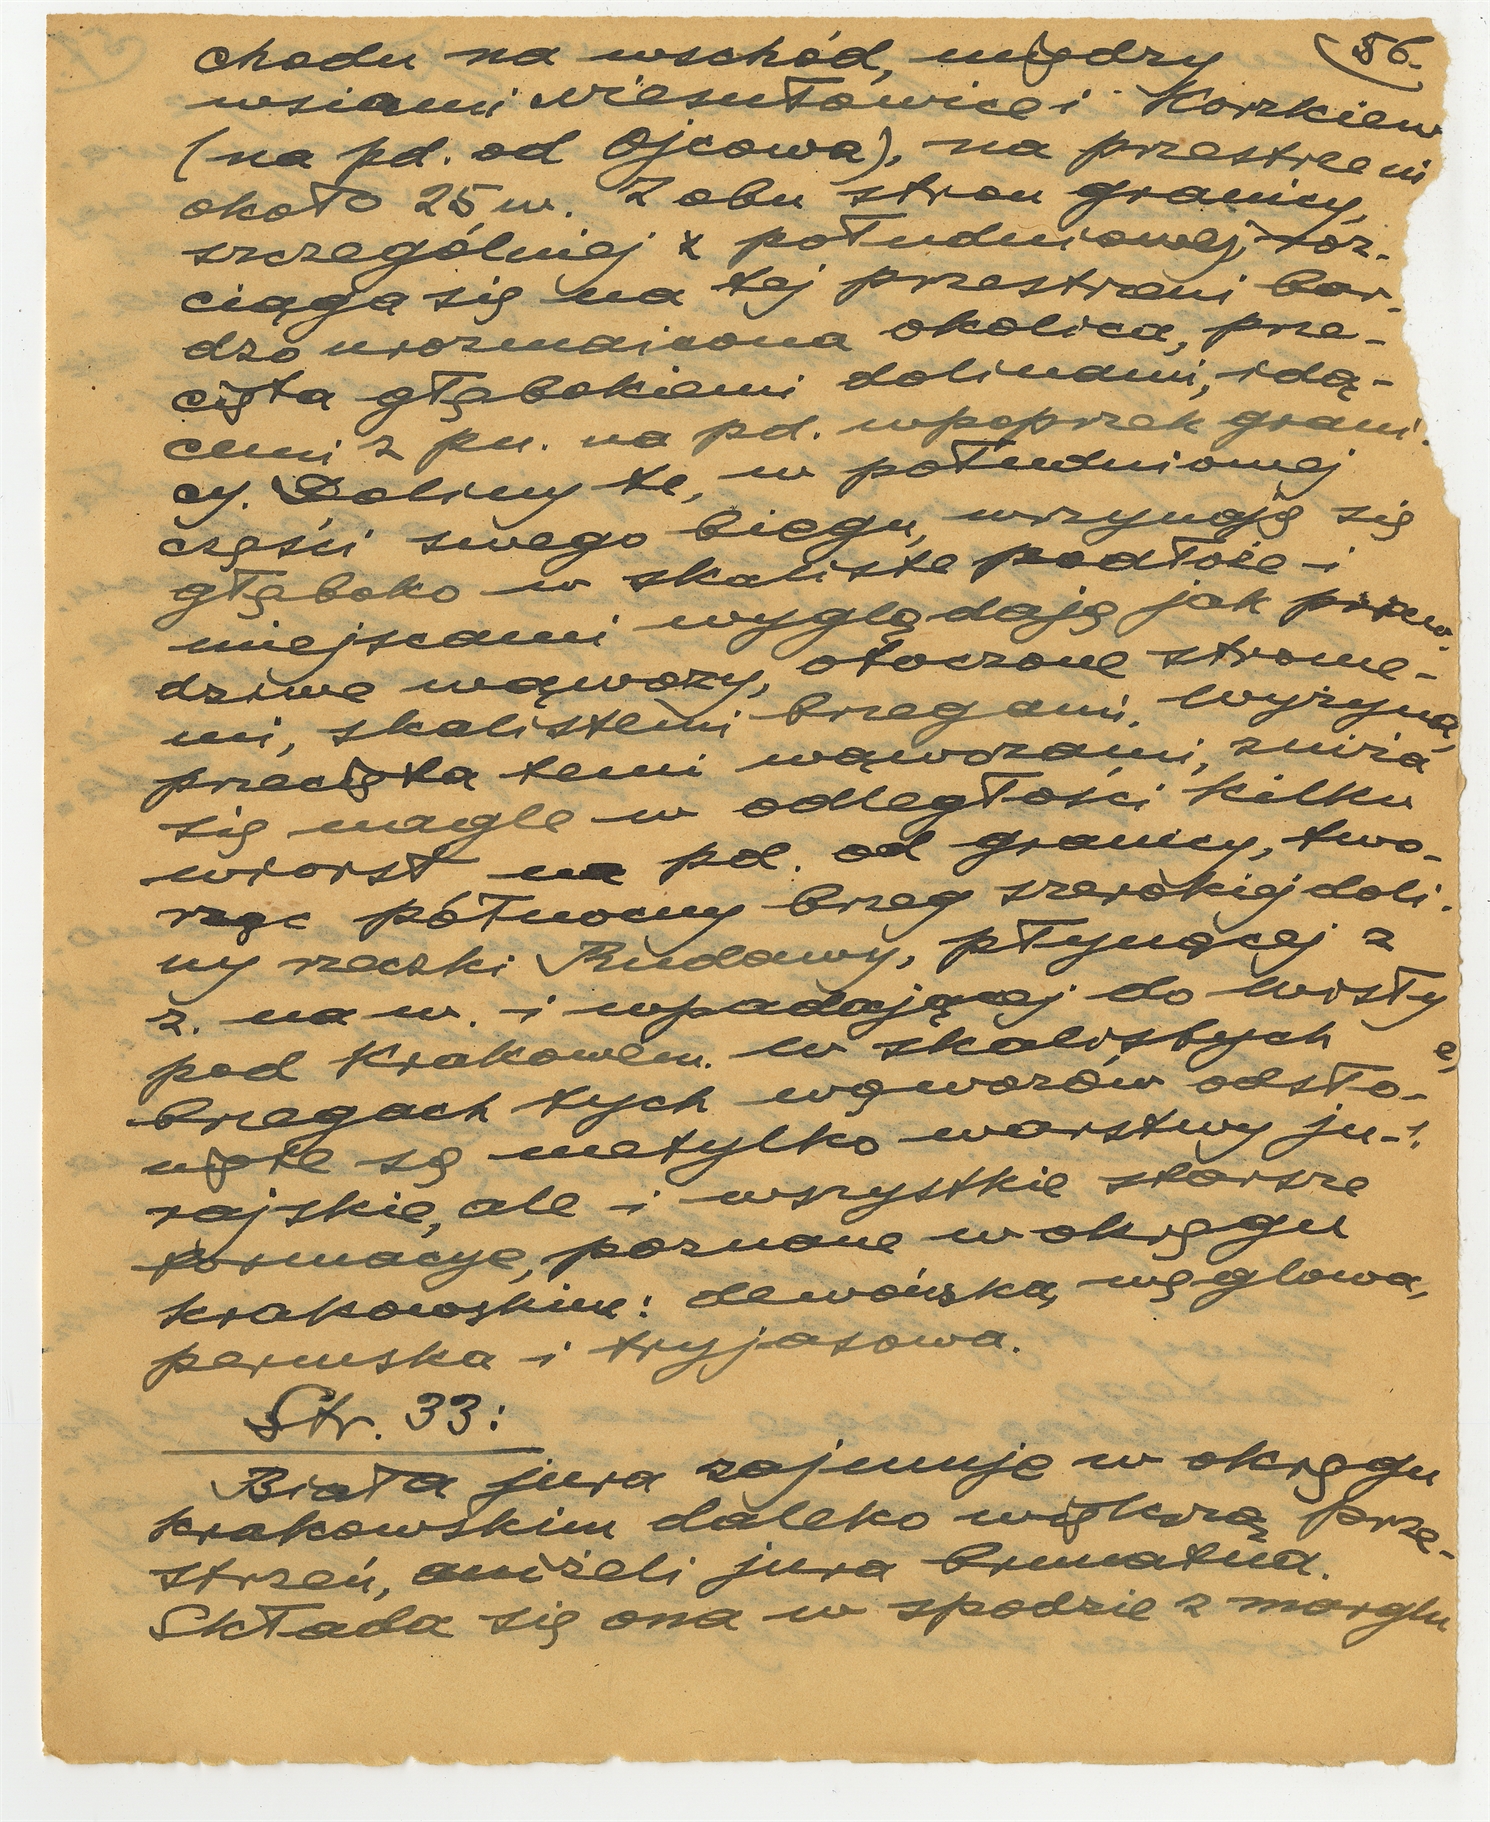 56.
chodu na wschód, między
wsiami Niesułowice i Korzkiew
(na pd. od Ojcowa), na przestrzeni
około 25 w. Z obu stron granicy,
szczególniej z południowej, roz-
ciąga się na tej przestrzeni bar-
dzo urozmaicona okolica, prze-
cięta głębokiemi dolinami, idą-
cemi z pn. na pd. wpoprzek grani-
cy. Doliny te, w południowej
części swego biegu, wrzynają się
głęboko w skaliste podłoże i
miejscami wyglądają jak praw-
dziwe wąwozy, otoczone strome-
mi, skalistemi brzegami. Wyżyna,
przecięta temi wąwozami, zniża
się nagle w odległości kilku
wiorst na pd. od granicy, two-
rząc północny brzeg szerokiej doli-
ny rzeczki Rudawy, płynącej z
z. na w. i wpadającej do Wisły
pod Krakowem. W skalistych
brzegach tych wąwozów odsło-
nięte są nietylko warstwy ju-
rajskie, ale i wszystkie starsze
formacye, poznane w okręgu
krakowskim: dewońska, węglowa,
permska i tryjasowa.
Str. 33:
Biała jura zajmuje w okręgu
krakowskim daleko większą prze-
strzeń, aniżeli jura brunatna.
Składa się ona w spodzie z marglu